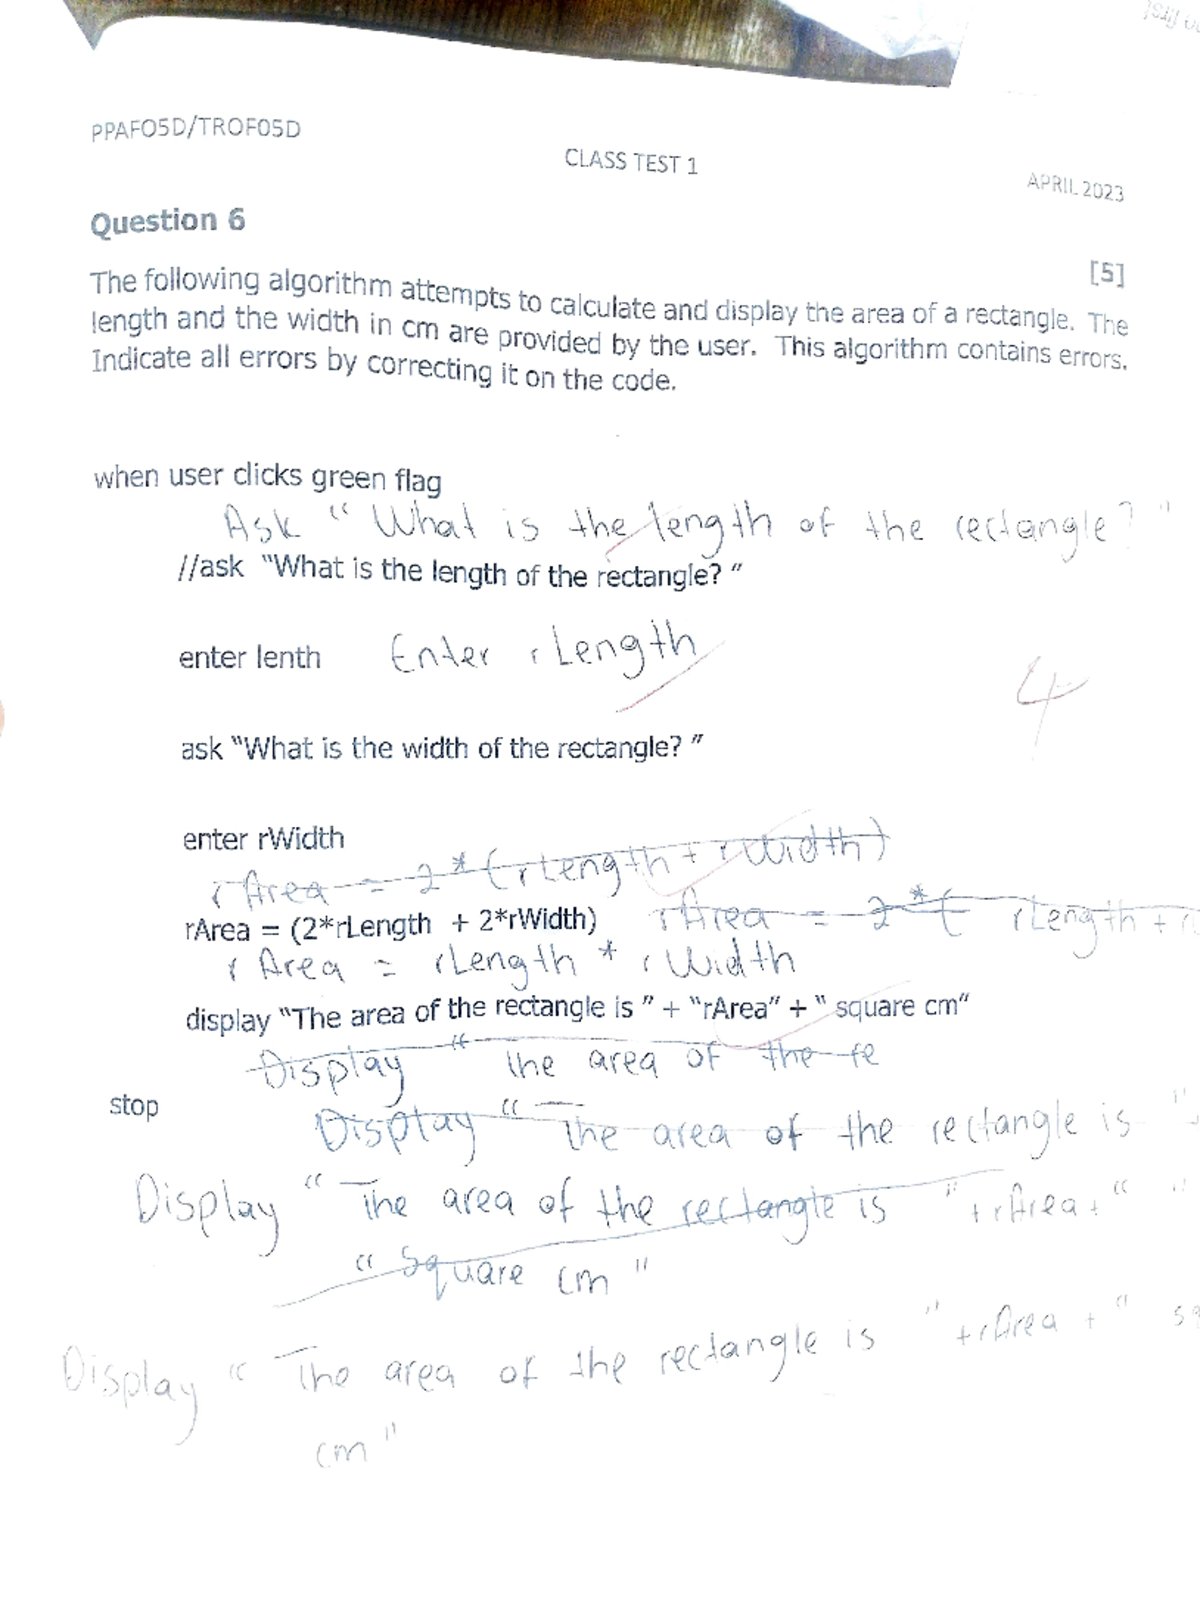 PPAFO5D/TROF05D
CLASS TEST 1
APRIL 2023
Question 6
[5]
The following algorithm attempts to calculate and display the area of a rectangle. The
length and the width in cm are provided by the user. This algorithm contains errors.
Indicate all errors by correcting it on the code.
when user clicks green flag
Ask " What is the length of the rectangle? "
//ask "What is the length of the rectangle? "
enter lenth Enter rLength
4
ask "What is the width of the rectangle? "
enter rWidth
rArea = 2*(rLength + rWidth)
rArea = (2*rLength + 2*rWidth) rArea = 2*( rLength +
rArea = rLength * rWidth
display "The area of the rectangle is " + "rArea" + " square cm"
Display " The area of the re
stop
Display " The area of the rectangle is "
Display " The area of the rectangle is " + rArea + "
" Square cm "
Display " The area of the rectangle is " + rArea + " sq
cm "